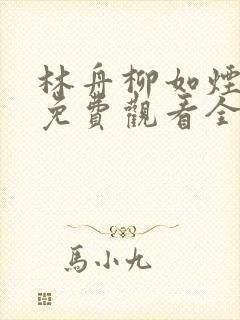 林舟柳如煙
免費觀看全
馬小九